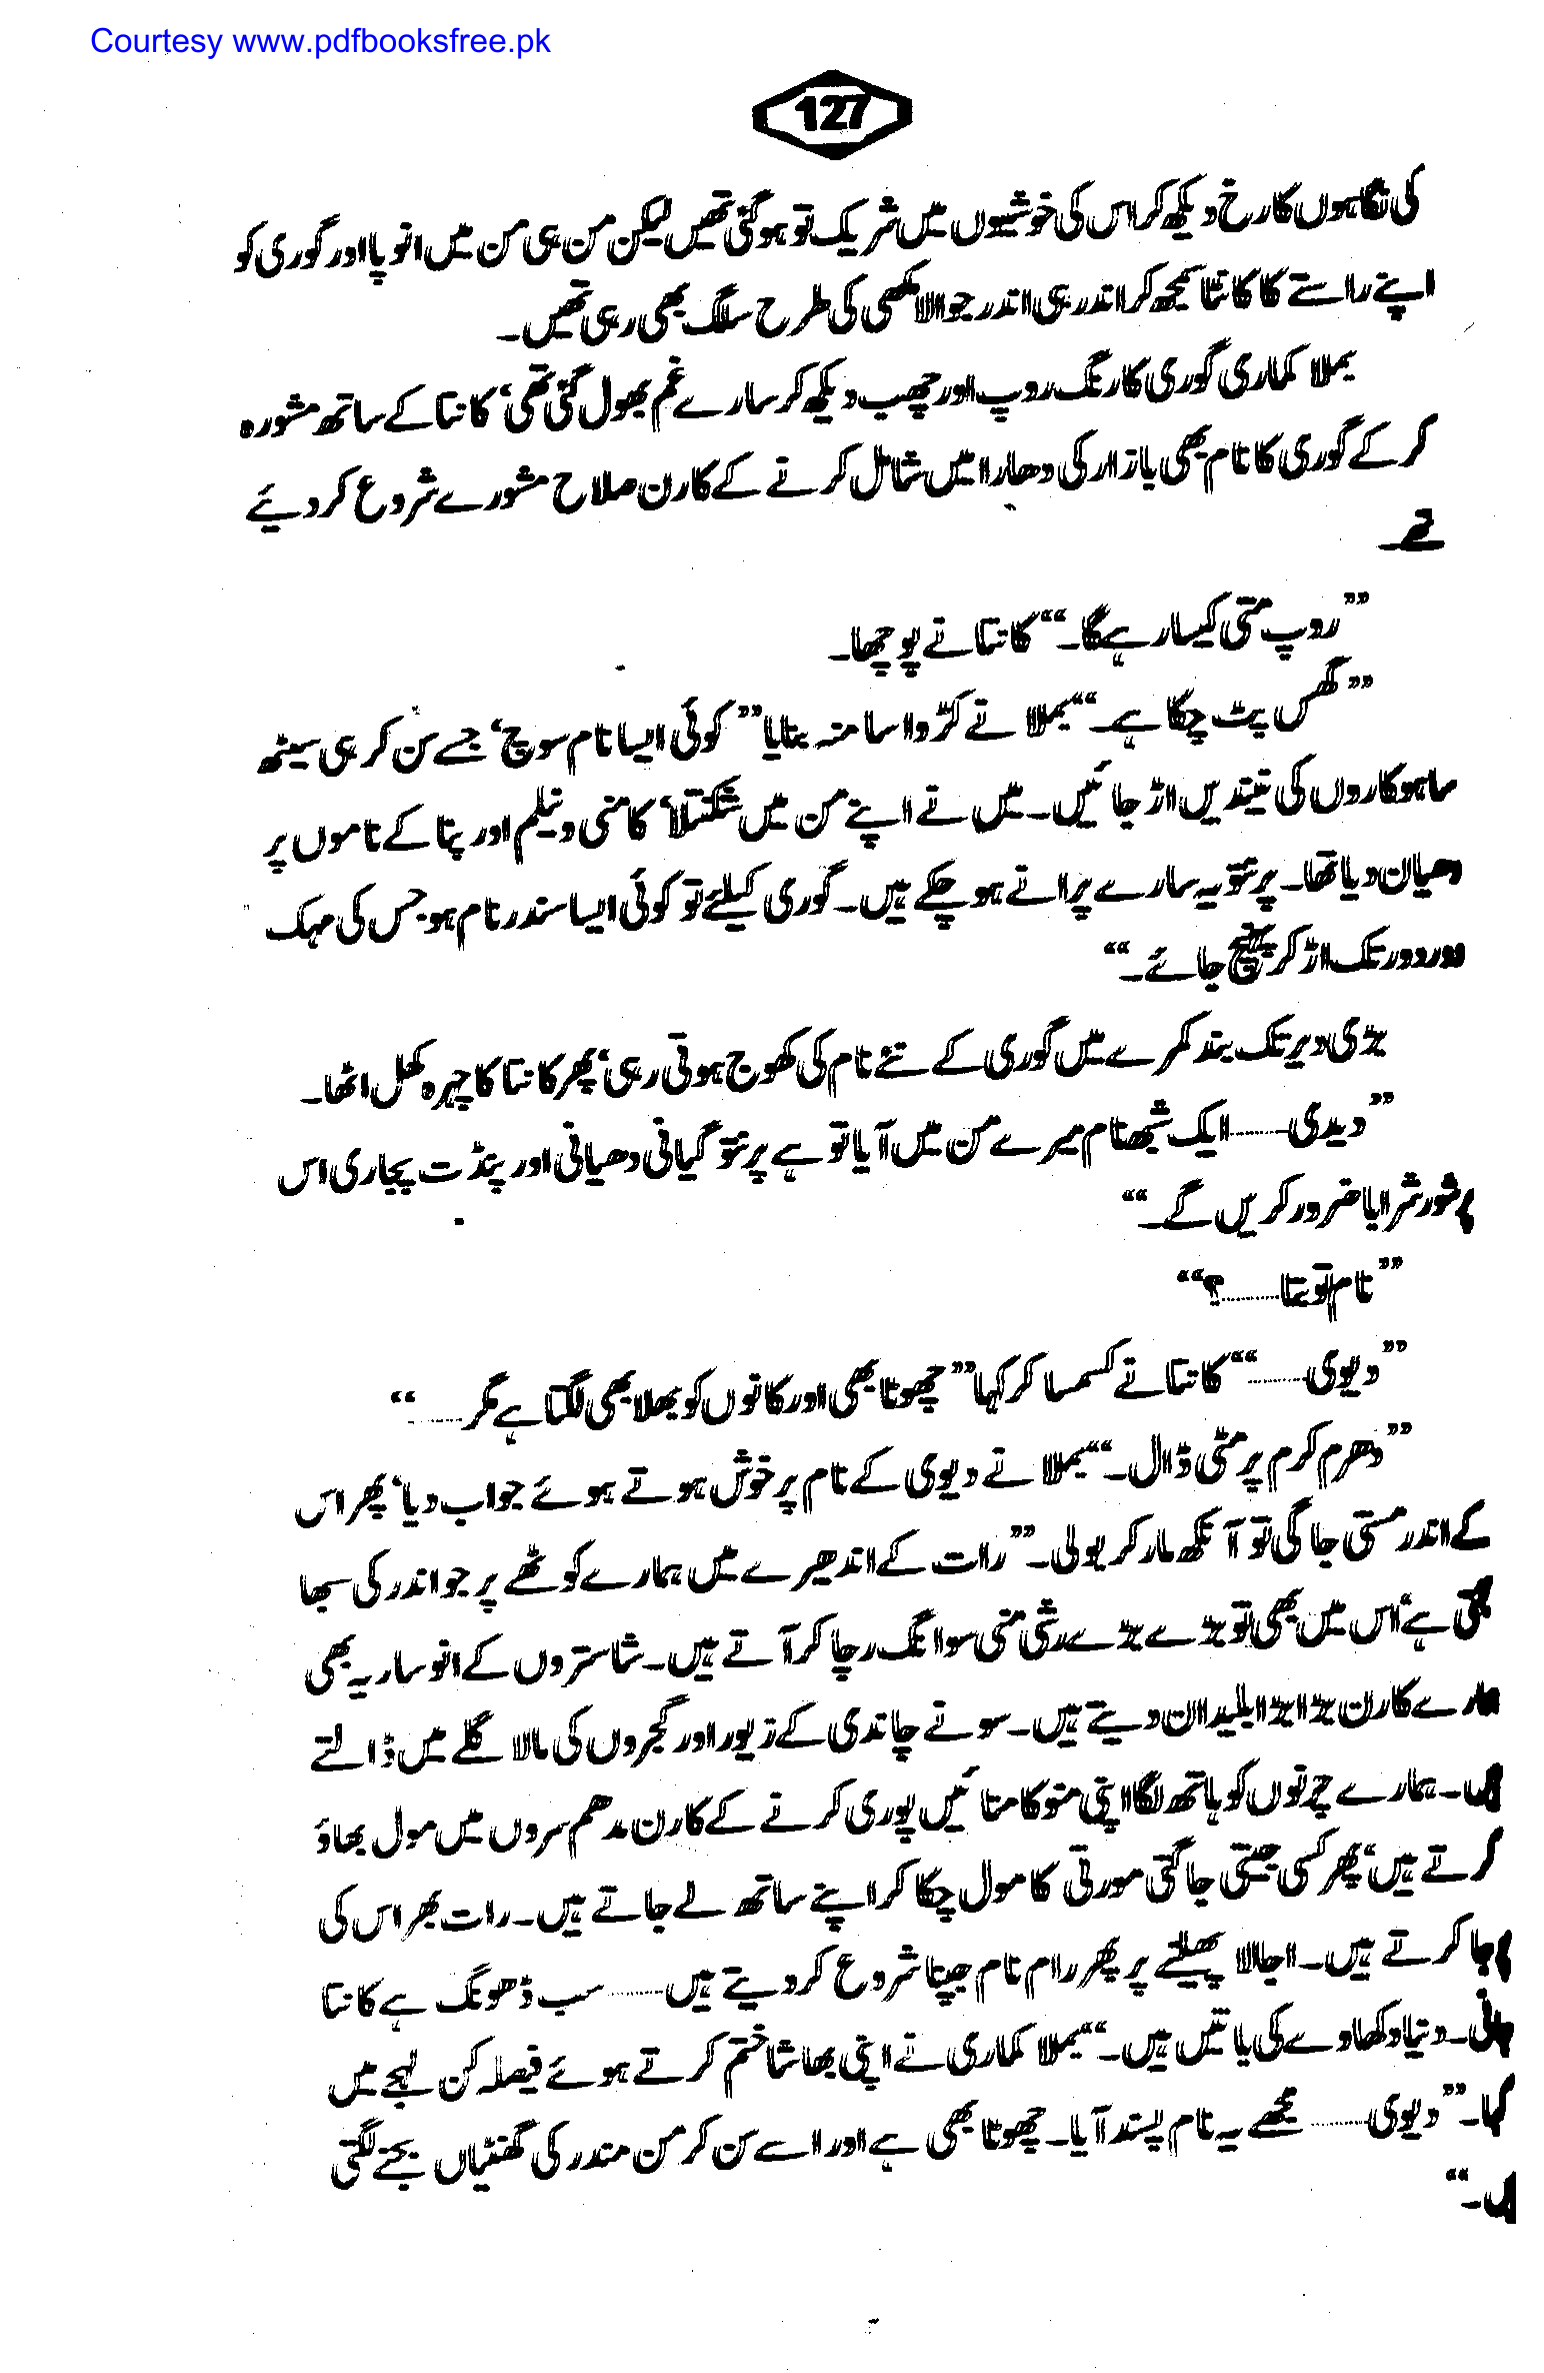 Courtesy www.pdfbooksfree.pk
127
کی نگاہوں کا رخ دیکھ کر اس کی خوشیوں میں شریک تو ہو گئی تھیں لیکن من ہی من میں انوپا اور گوری کو
اپنے راستے کا کانٹا سمجھ کر اندر ہی اندر جوالا مکھی کی طرح سلگ بھی رہی تھیں۔
بملا کماری گوری کا رنگ روپ اور چھب دیکھ کر سارے غم بھول گئی تھی‘ کانتا کے ساتھ مشورہ
کر کے گوری کا نام بھی بازار کی دھارا میں شامل کرنے کے کارن صلاح مشورے شروع کر دیئے
تھے۔
”روپ متی کیسا رہے گا۔“ کانتا نے پوچھا۔
”گھس پٹ چکا ہے۔“ بملا نے کڑوا سا منہ بنایا ”کوئی ایسا نام سوچ‘ جسے سن کر ہی سیٹھ
ساہوکاروں کی نیندیں اڑ جائیں۔ میں نے اپنے من میں شکنتلا‘ کامنی و نیلم اور پنا کے ناموں پر
دھیان دیا تھا۔ پرنتو یہ سارے پرانے ہو چکے ہیں۔ گوری کیلئے تو کوئی ایسا سندر نام ہو جس کی مہک
دور دور تک اڑ کر پہنچ جائے۔“
بڑی دیر تک بند کمرے میں گوری کے نئے نام کی کھوج ہوتی رہی‘ پھر کانتا کا چہرہ کھل اٹھا۔
”دیدی...... ایک شبھ نام میرے من میں آیا تو ہے پرنتو گیانی دھیانی اور پنڈت پجاری اس
پر شور شرابا ضرور کریں گے۔“
”نام تو بتا......؟“
”دیوی......“ کانتا نے کسمسا کر کہا ”چھوٹا بھی اور کانوں کو بھلا بھی لگتا ہے مگر......“
”دھرم کرم پر مٹی ڈال۔“ بملا نے دیوی کے نام پر خوش ہوتے ہوئے جواب دیا‘ پھر اس
کے اندر مستی جاگی تو آنکھ مار کر بولی۔ ”رات کے اندھیرے میں ہمارے کوٹھے پر جو اندر کی سبھا
لگتی ہے‘ اس میں بھی تو بڑے بڑے رشی منی سوانگ رچا کر آتے ہیں۔ شاستروں کے انوسار یہ بھی
ہمارے کارن بڑا بڑا بلیدان دیتے ہیں۔ سونے چاندی کے زیور اور گجروں کی مالا گلے میں ڈالتے
ہیں۔ ہمارے چرنوں کو ہاتھ لگا اپنی منوکامنائیں پوری کرنے کے کارن مدھم سروں میں مول بھاؤ
کرتے ہیں‘ پھر کسی جیتی جاگتی مورتی کا مول چکا کر اپنے ساتھ لے جاتے ہیں۔ رات بھر اس کی
پوجا کرتے ہیں۔ اجالا پھیلنے پر پھر رام نام جپنا شروع کر دیتے ہیں...... سب ڈھونگ ہے کانتا
بائی۔ دنیا دکھاوے کی باتیں ہیں۔“ بملا کماری نے اپنی بھاشا ختم کرتے ہوئے فیصلہ کن لہجے میں
کہا۔ ”دیوی...... مجھے یہ نام پسند آیا۔ چھوٹا بھی ہے اور اسے سن کر من مندر کی گھنٹیاں بجنے لگتی
ہیں۔“